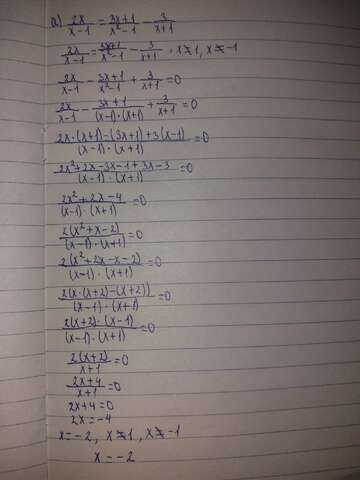 a) 2x/(x-1) = (3x+1)/(x²-1) - 3/(x+1)
2x/(x-1) = (3x+1)/(x²-1) - 3/(x+1), x≠1, x≠-1
2x/(x-1) - (3x+1)/(x²-1) + 3/(x+1) = 0
2x/(x-1) - (3x+1)/((x-1)·(x+1)) + 3/(x+1) = 0
(2x·(x+1)-(3x+1)+3(x-1))/((x-1)·(x+1)) = 0
(2x²+2x-3x-1+3x-3)/((x-1)·(x+1)) = 0
(2x²+2x-4)/((x-1)·(x+1)) = 0
2(x²+x-2)/((x-1)·(x+1)) = 0
2(x²+2x-x-2)/((x-1)·(x+1)) = 0
2(x·(x+2)-(x+2))/((x-1)·(x+1)) = 0
2(x+2)·(x-1)/((x-1)·(x+1)) = 0
2(x+2)/(x+1) = 0
(2x+4)/(x+1) = 0
2x+4=0
2x=-4
x=-2, x≠1, x≠-1
x=-2